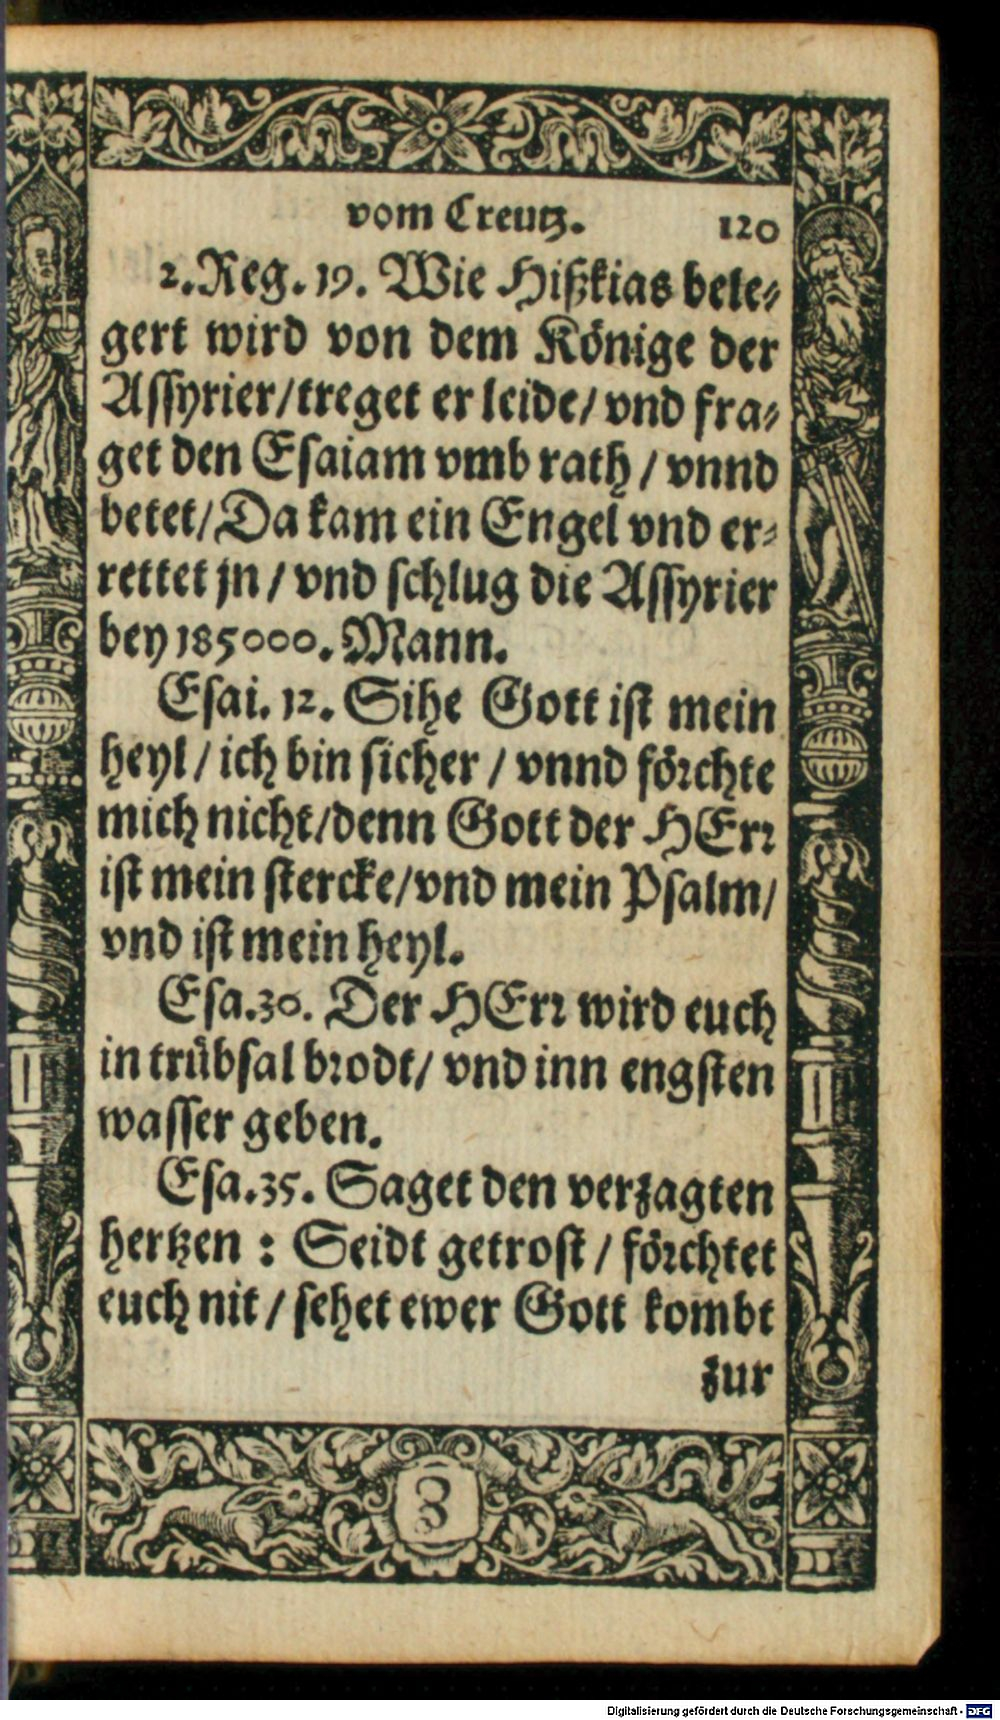 vom Creutz. 120
2. Reg. 19. Wie Hißkias bele⸗
gert wird von dem Könige der
Assyrier/treget er leide/ vnd fra⸗
get den Esaiam vmb rath / vnnd
betet/ Da kam ein Engel vnd er⸗
rettet jn / vnd schlug die Assyrier
bey 185000. Mann.
Esai. 12. Sihe Gott ist mein
heyl / ich bin sicher / vnnd förchte
mich nicht/denn Gott der HErr
ist mein stercke/vnd mein Psalm/
vnd ist mein heyl.
Esa.30. Der HErr wird euch
in trübsal brodt/ vnd inn engsten
wasser geben.
Esa.35. Saget den verzagten
hertzen : Seidt getrost / förchtet
euch nit / sehet ewer Gott kombt
zur
Digitalisierung gefördert durch die Deutsche Forschungsgemeinschaft - DFG